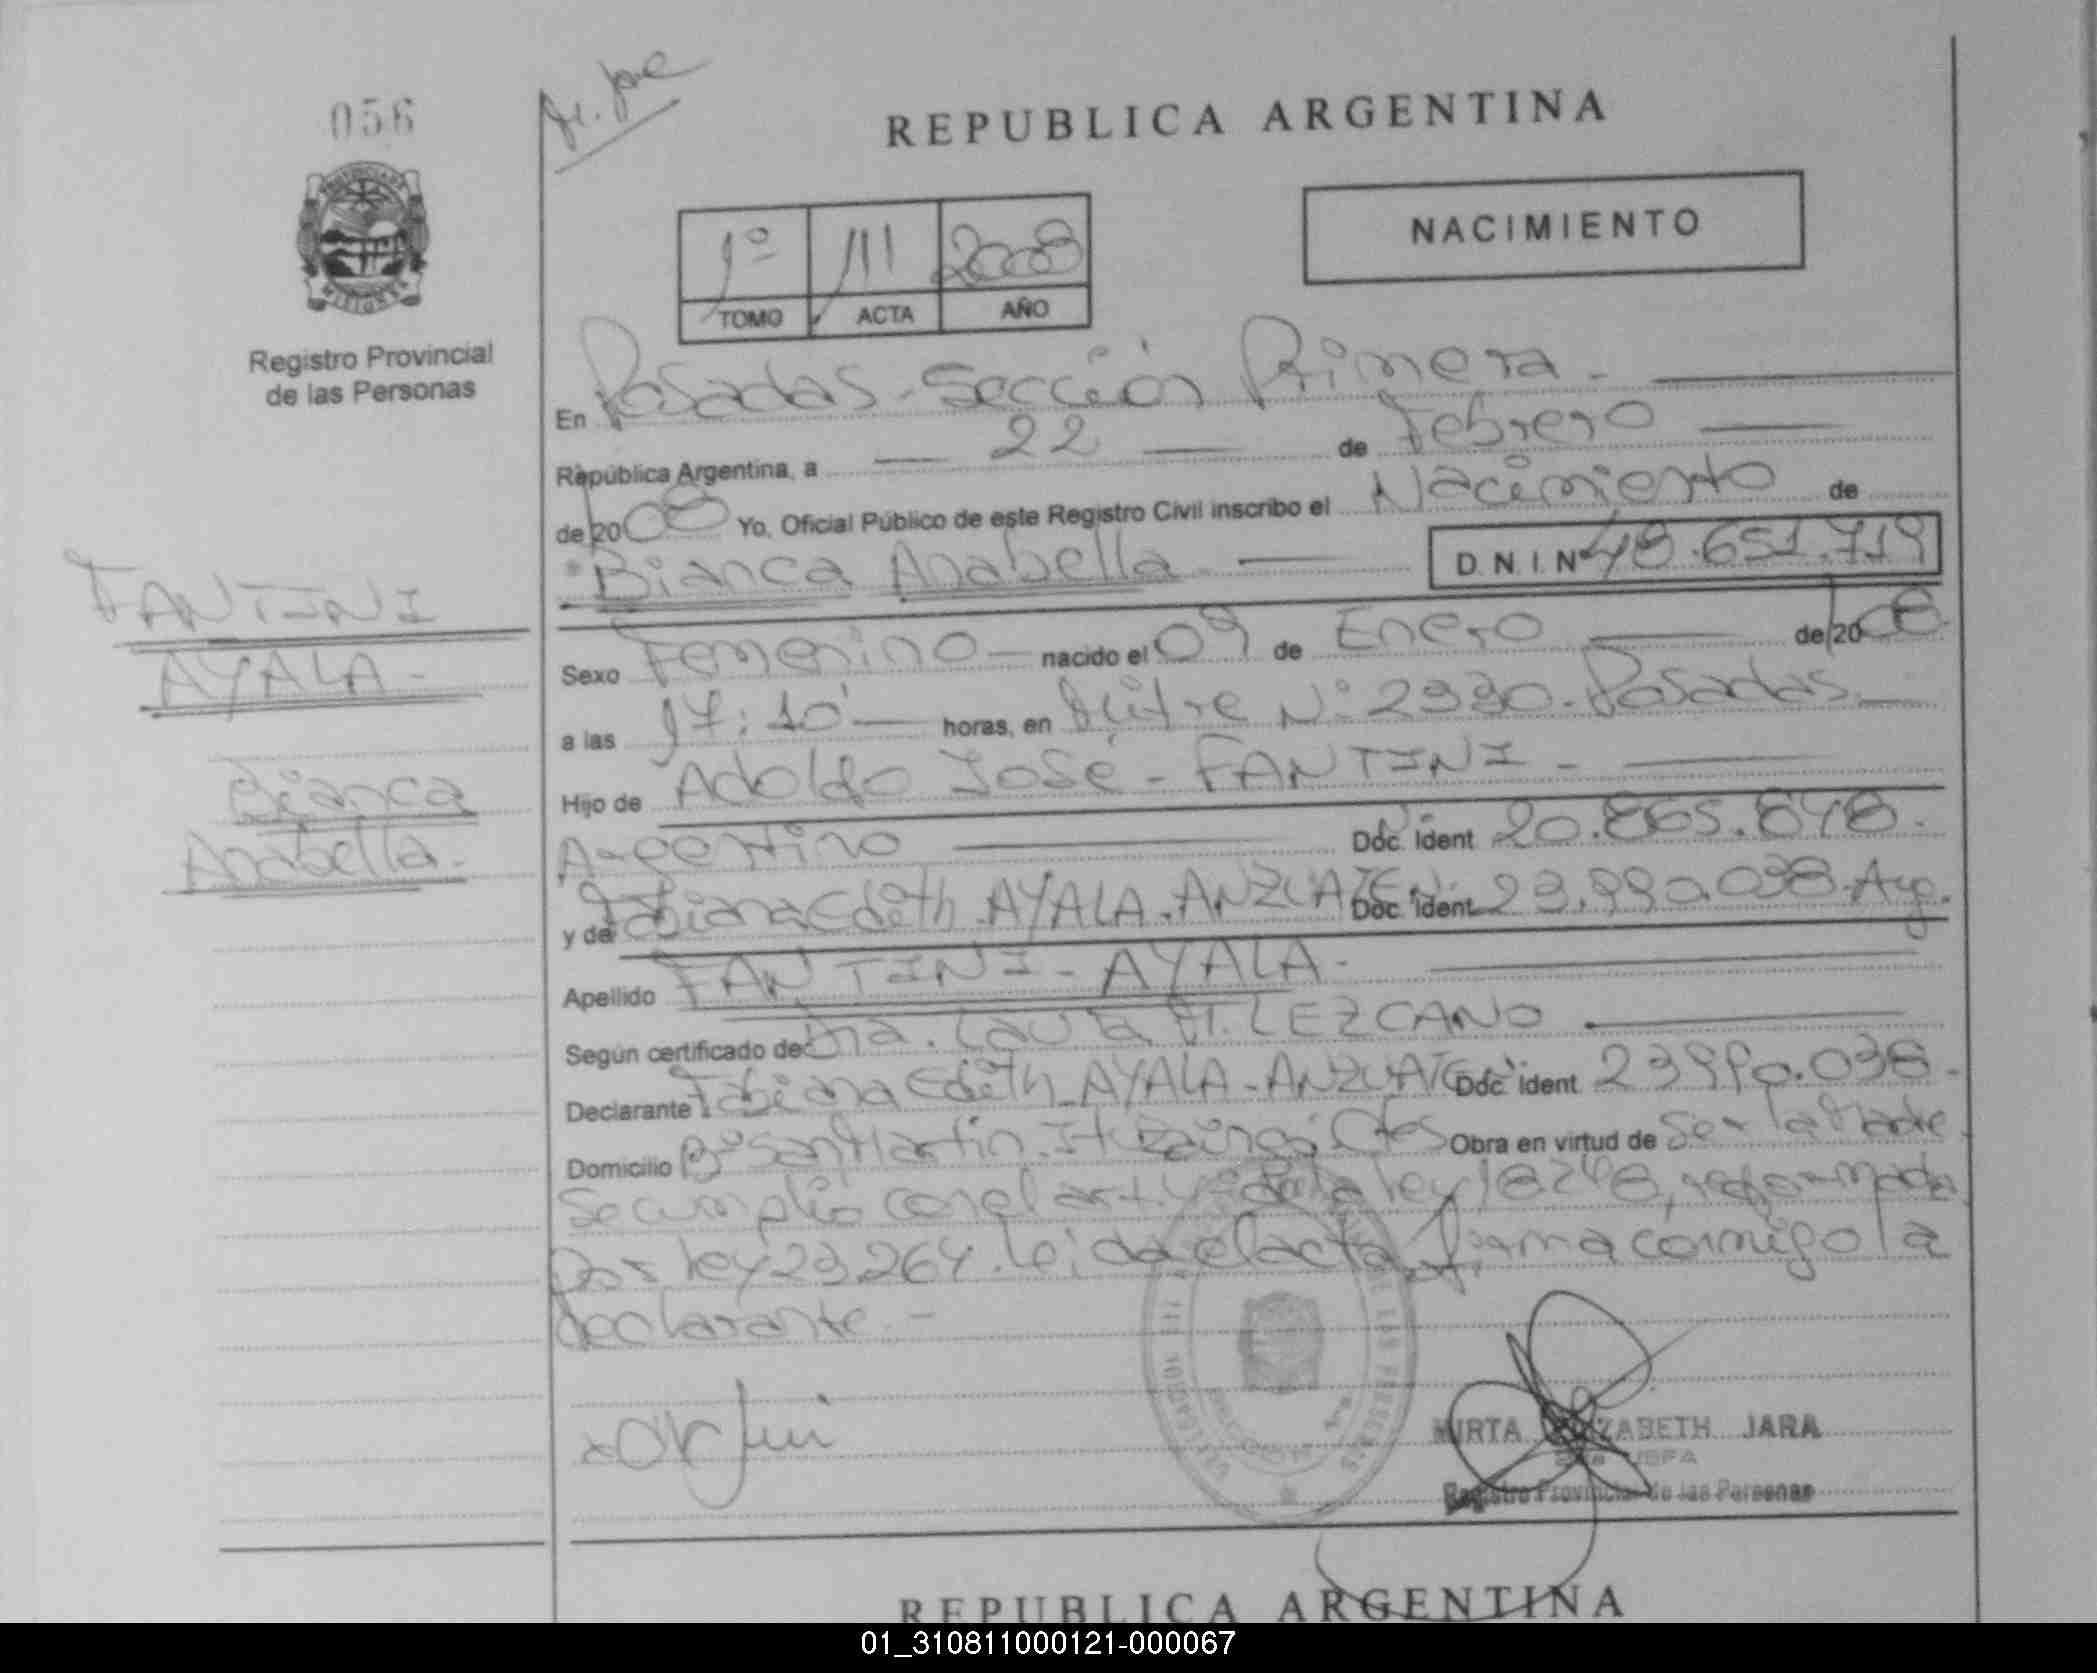 056
REPUBLICA ARGENTINA
NACIMIENTO
1º 111 2008
TOMO ACTA AÑO
Registro Provincial
de las Personas
En Posadas - Sección Primera -
República Argentina, a 22 de Febrero
de 2008 Yo, Oficial Público de este Registro Civil inscribo el Nacimiento de
Bianca Anabella D.N.I. Nº 48.651.719
FANTINI
AYALA -
Bianca
Anabella -
Sexo Femenino nacido el 09 de Enero de 2008
a las 17:10 horas, en Mitre Nº 2330. Posadas
Hijo de Adolfo José - FANTINI -
Argentino Doc. Ident 20.865.848.
y de Fabiana Edith AYALA - ANZUATE Doc. Ident 23.990.038 - Arg.
Apellido FANTINI - AYALA -
Según certificado de Dra. Laura M. LEZCANO
Declarante Fabiana Edith AYALA - ANZUATE Doc. Ident 23990.038 -
Domicilio Bº San Martin. Ituzaingó, Ctes Obra en virtud de Ser la Madre
Se cumplio con el art. 4º de la ley 18248, reformada
por ley 23.264. Leida el acta, firma conmigo la
declarante. -
MIRTA ELIZABETH JARA
Registro Provincial de las Personas
REPUBLICA ARGENTINA
01_310811000121-000067